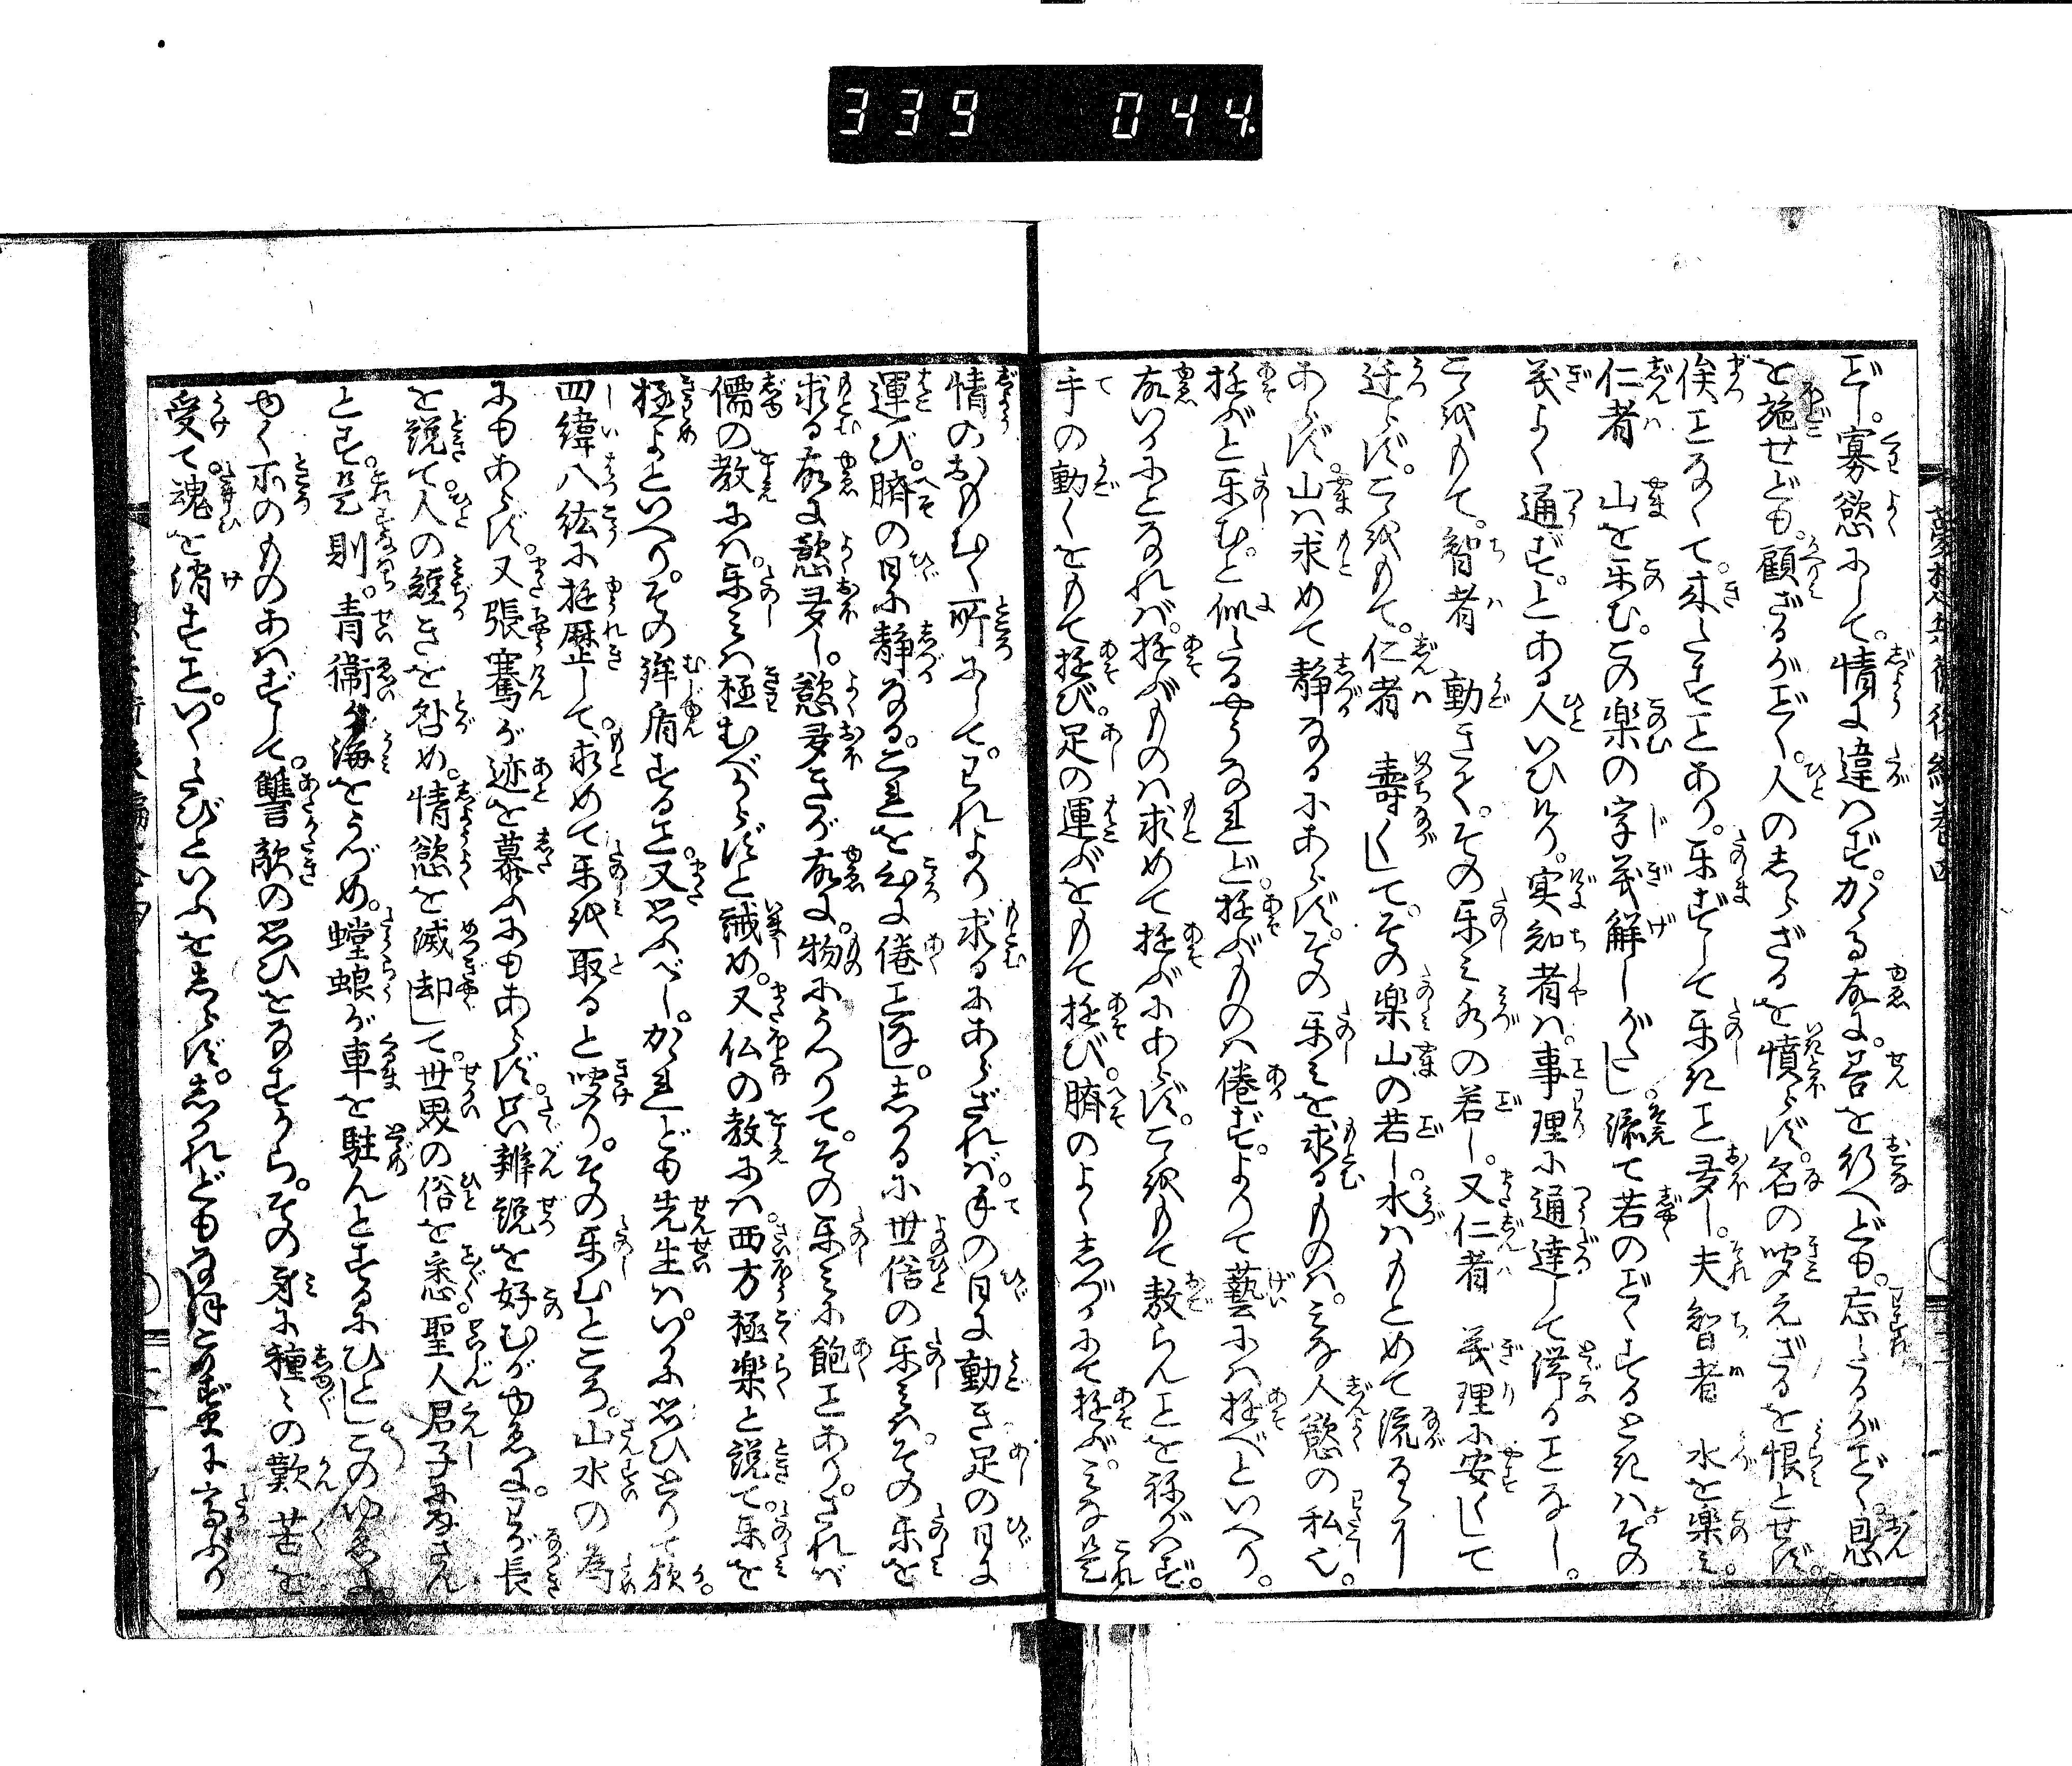 339 044.
夢想兵衛後編巻四
ごとし。寡慾にして。情に違はず。かゝる故に。善を行へども。忘れたるがごとく。恩
を施せども。顧ざるがごとく。人のしらざるを憤らず。名の聞えざるを恨とせず。
俟ことなくて。来たすことあり。楽ずして楽きこと多し。夫智者 水を楽み。
仁者 山を楽む。この楽の字義解しがたし。添て若のごとくするときはその
義よく通ず。とある人いひけり。実知者は。事理に通達して滞ることなし。
こゝをもて。智者 動きて。その楽み水の若し。又仁者 義理に安くして
迂らず。こゝをもて。仁者 寿くして。その楽山の若し。水はもとめて流るゝに
あらず。山は求めて静なるにあらず。その楽みを求るものは。みな人慾の私也。
遊ぶと楽むと似たるやうなれど。遊ぶものは倦ず。よりて藝には遊べといへり。
故いかにとなれば。遊ぶものは求めて遊ぶにあらず。こゝをもて敖らんことを禰がはず。
手の動くをもて遊び。足の運ぶをもて遊び。臍のよくしづかにて遊ぶ。みな是
情のおもむく所にして。われより求るにあらざれば。手の日に動き足の日に
運び。臍の日に静なる。これを心に倦ことなし。しかるに世俗の楽みは。その楽を
求る故に慾多し。慾多きが故に。物にうつりて。その楽みに飽ことあり。されば
儒の教には。楽みは極むべからずと誡め。又仏の教には。西方極楽と説て。楽を
極よといへり。その鉾盾すること。又思ふべし。かゝれども先生は。いかに思ひとりて歟。
四緯八紘に遊歴して。求めて楽を取ると聞けり。その楽むところ。山水の為
にもあらず。又張騫が迹を慕ふにもあらず。只辨説を好むがゆゑに。わが長
を説て人の短きを咎め。情慾を滅却して。世界の俗を悉く。聖人君子になさん
とす。是則。青衛が海をうづめ。螳螂が車を駐んとするにひとし。このゆゑに。
ゆく所のものあはずして。讐敵の思ひをなすから。その身に種々の歎苦を
受て。魂を消すこと。いくたびといふをしらず。しかれども